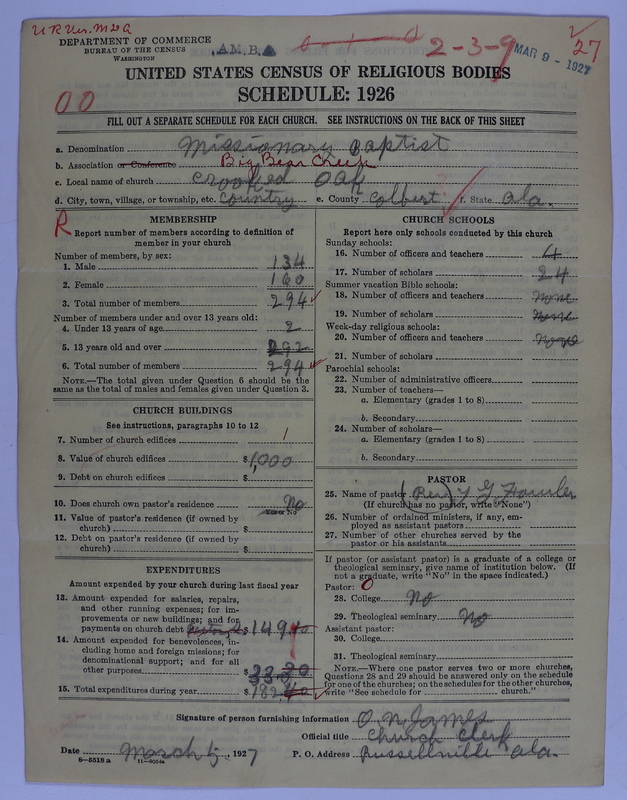 U R Ver. M D A
DEPARTMENT OF COMMERCE
BUREAU OF THE CENSUS
WASHINGTON
A.M.B.A.
2-3-9
MAR 9 - 1927
27
UNITED STATES CENSUS OF RELIGIOUS BODIES
SCHEDULE: 1926
00
FILL OUT A SEPARATE SCHEDULE FOR EACH CHURCH. SEE INSTRUCTIONS ON THE BACK OF THIS SHEET
a. Denomination Missionary Baptist
b. Association or Conference Big Bear Creek
c. Local name of church Crooked Oak
d. City, town, village, or township, etc. Country e. County Colbert f. State Ala.
R
MEMBERSHIP
Report number of members according to definition of
member in your church
Number of members, by sex:
1. Male 134
2. Female 160
3. Total number of members 294
Number of members under and over 13 years old:
4. Under 13 years of age 2
5. 13 years old and over 292
6. Total number of members 294
NOTE.—The total given under Question 6 should be the
same as the total of males and females given under Question 3.
CHURCH BUILDINGS
See instructions, paragraphs 10 to 12
7. Number of church edifices 1
8. Value of church edifices $1,000
9. Debt on church edifices $
10. Does church own pastor's residence No
Yes or No
11. Value of pastor's residence (if owned by
church) $
12. Debt on pastor's residence (if owned by
church) $
EXPENDITURES
Amount expended by your church during last fiscal year
13. Amount expended for salaries, repairs,
and other running expenses; for im-
provements or new buildings; and for
payments on church debt $149
14. Amount expended for benevolences, in-
cluding home and foreign missions; for
denominational support; and for all
other purposes $33
15. Total expenditures during year $182
CHURCH SCHOOLS
Report here only schools conducted by this church
Sunday schools:
16. Number of officers and teachers 4
17. Number of scholars 24
Summer vacation Bible schools:
18. Number of officers and teachers none
19. Number of scholars none
Week-day religious schools:
20. Number of officers and teachers none
21. Number of scholars
Parochial schools:
22. Number of administrative officers
23. Number of teachers—
a. Elementary (grades 1 to 8)
b. Secondary
24. Number of scholars—
a. Elementary (grades 1 to 8)
b. Secondary
PASTOR
25. Name of pastor (Rev)
(If church has no pastor, write "None")
26. Number of ordained ministers, if any, em-
ployed as assistant pastors
27. Number of other churches served by the
pastor or his assistants
If pastor (or assistant pastor) is a graduate of a college or
theological seminary, give name of institution below. (If
not a graduate, write "No" in the space indicated.)
Pastor: 0
28. College No
29. Theological seminary No
Assistant pastor:
30. College
31. Theological seminary
NOTE.—Where one pastor serves two or more churches,
Questions 28 and 29 should be answered only on the schedule
for one of the churches; on the schedules for the other churches,
write "See schedule for church."
Signature of person furnishing information O. N. James
Official title Church Clerk
Date March 5, 1927 P. O. Address Russellville Ala.
6—5518 a 11—9054a